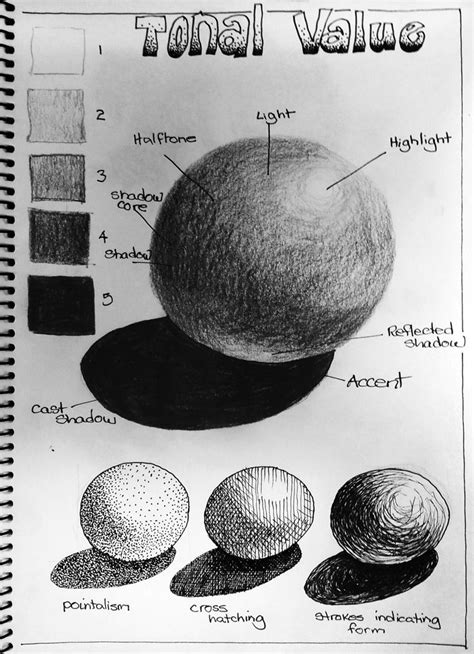 Tonal Value
1
2
3
4
5
Light
Halftone
Highlight
shadow
core
shadow
Reflected
shadow
Accent
Cast
shadow
pointalism
cross
hatching
strokes indicating
form